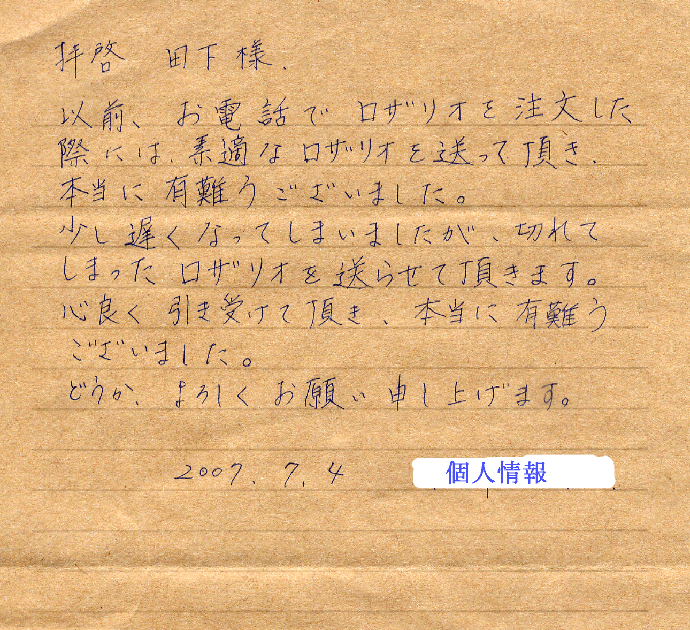 拝啓 田下様.
以前、お電話でロザリオを注文した
際には、素適なロザリオを送って頂き、
本当に有難うございました。
少し遅くなってしまいましたが、切れて
しまったロザリオを送らせて頂きます。
心良く引き受けて頂き、本当に有難う
ございました。
どうか、よろしくお願い申し上げます。
2007.7.4 個人情報